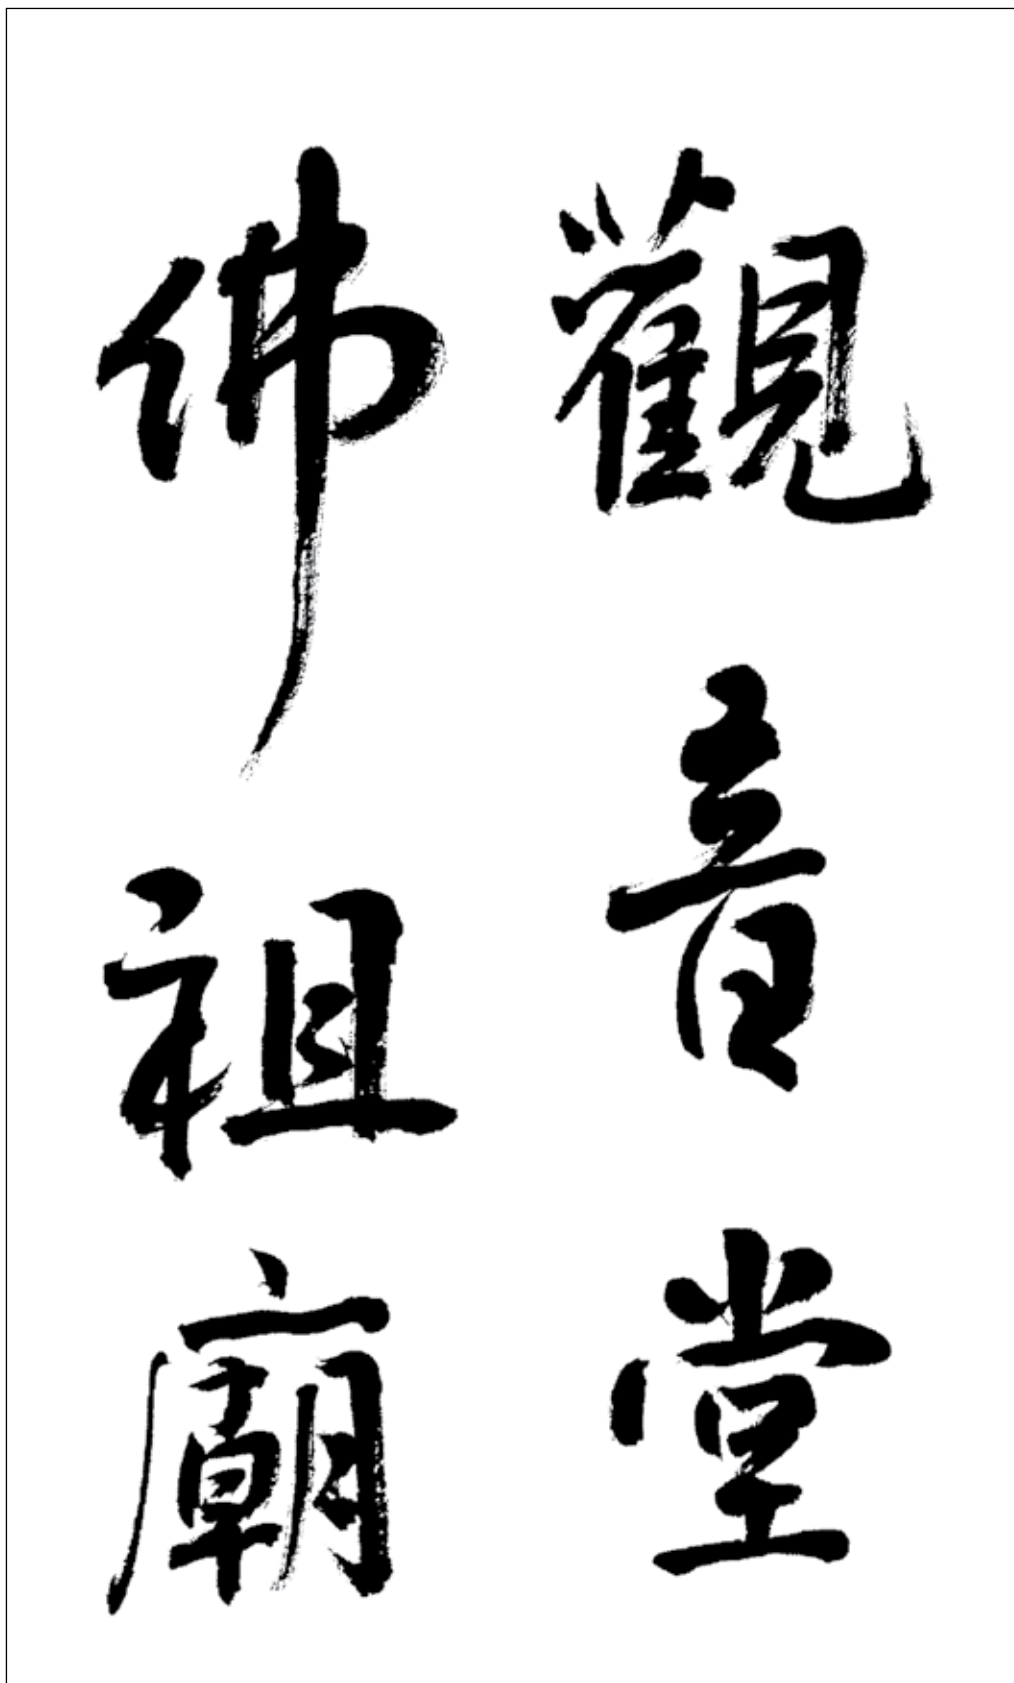 觀音堂
佛祖廟